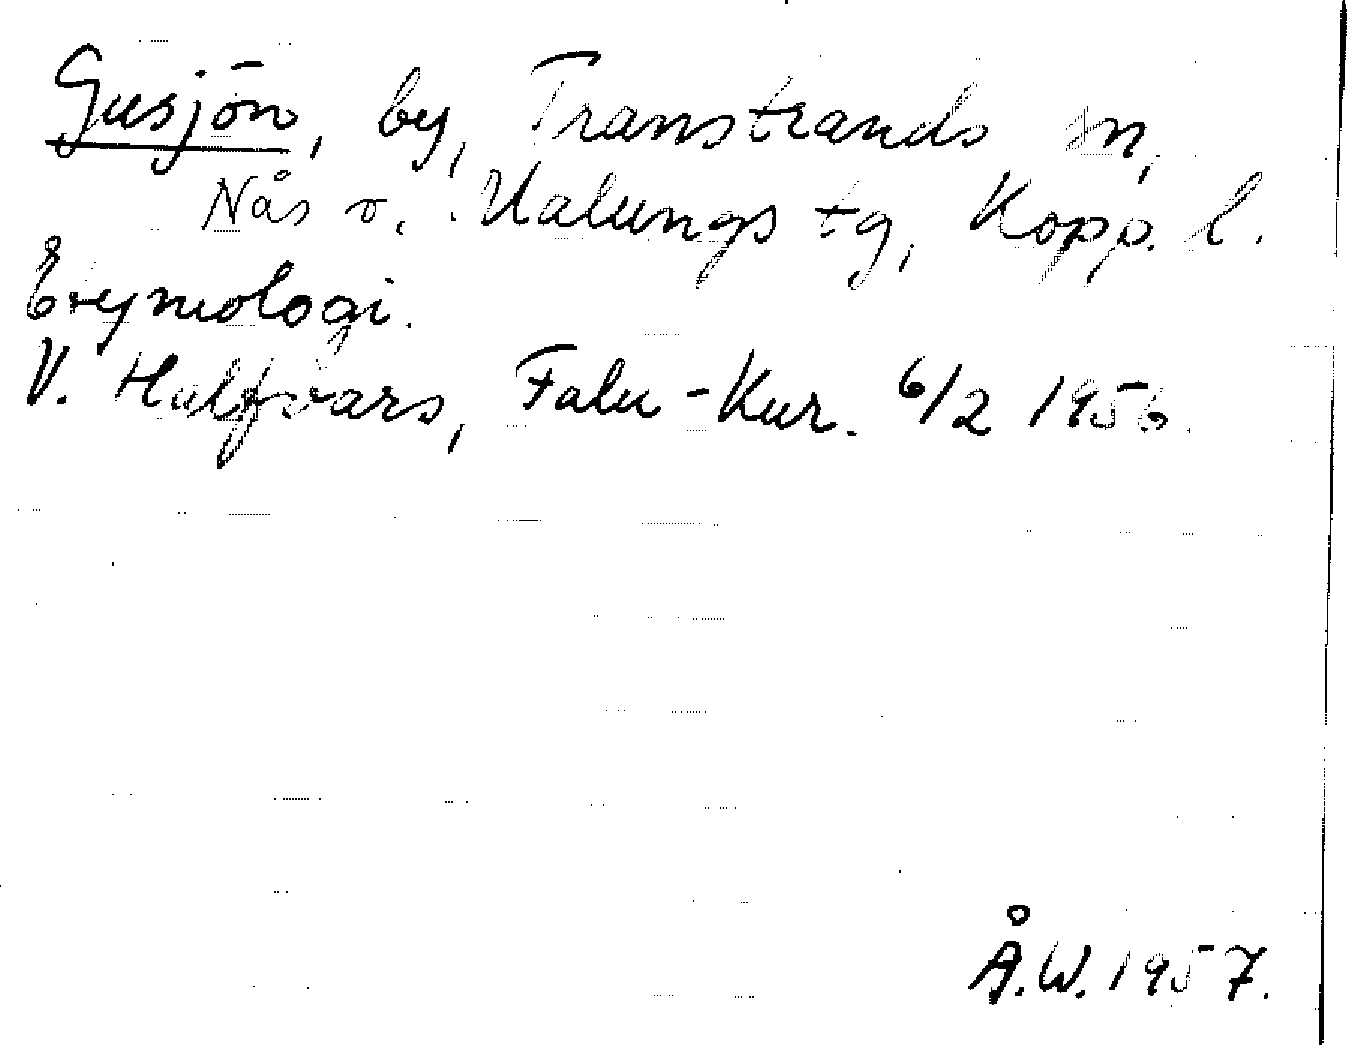 Gusjön, by, Transtrands sn,
Nås o. Malungs tg, Kopp. l.
Etymologi.
V. Halfvars, Falu-Kur. 6/2 1956.
Å.W. 1957.